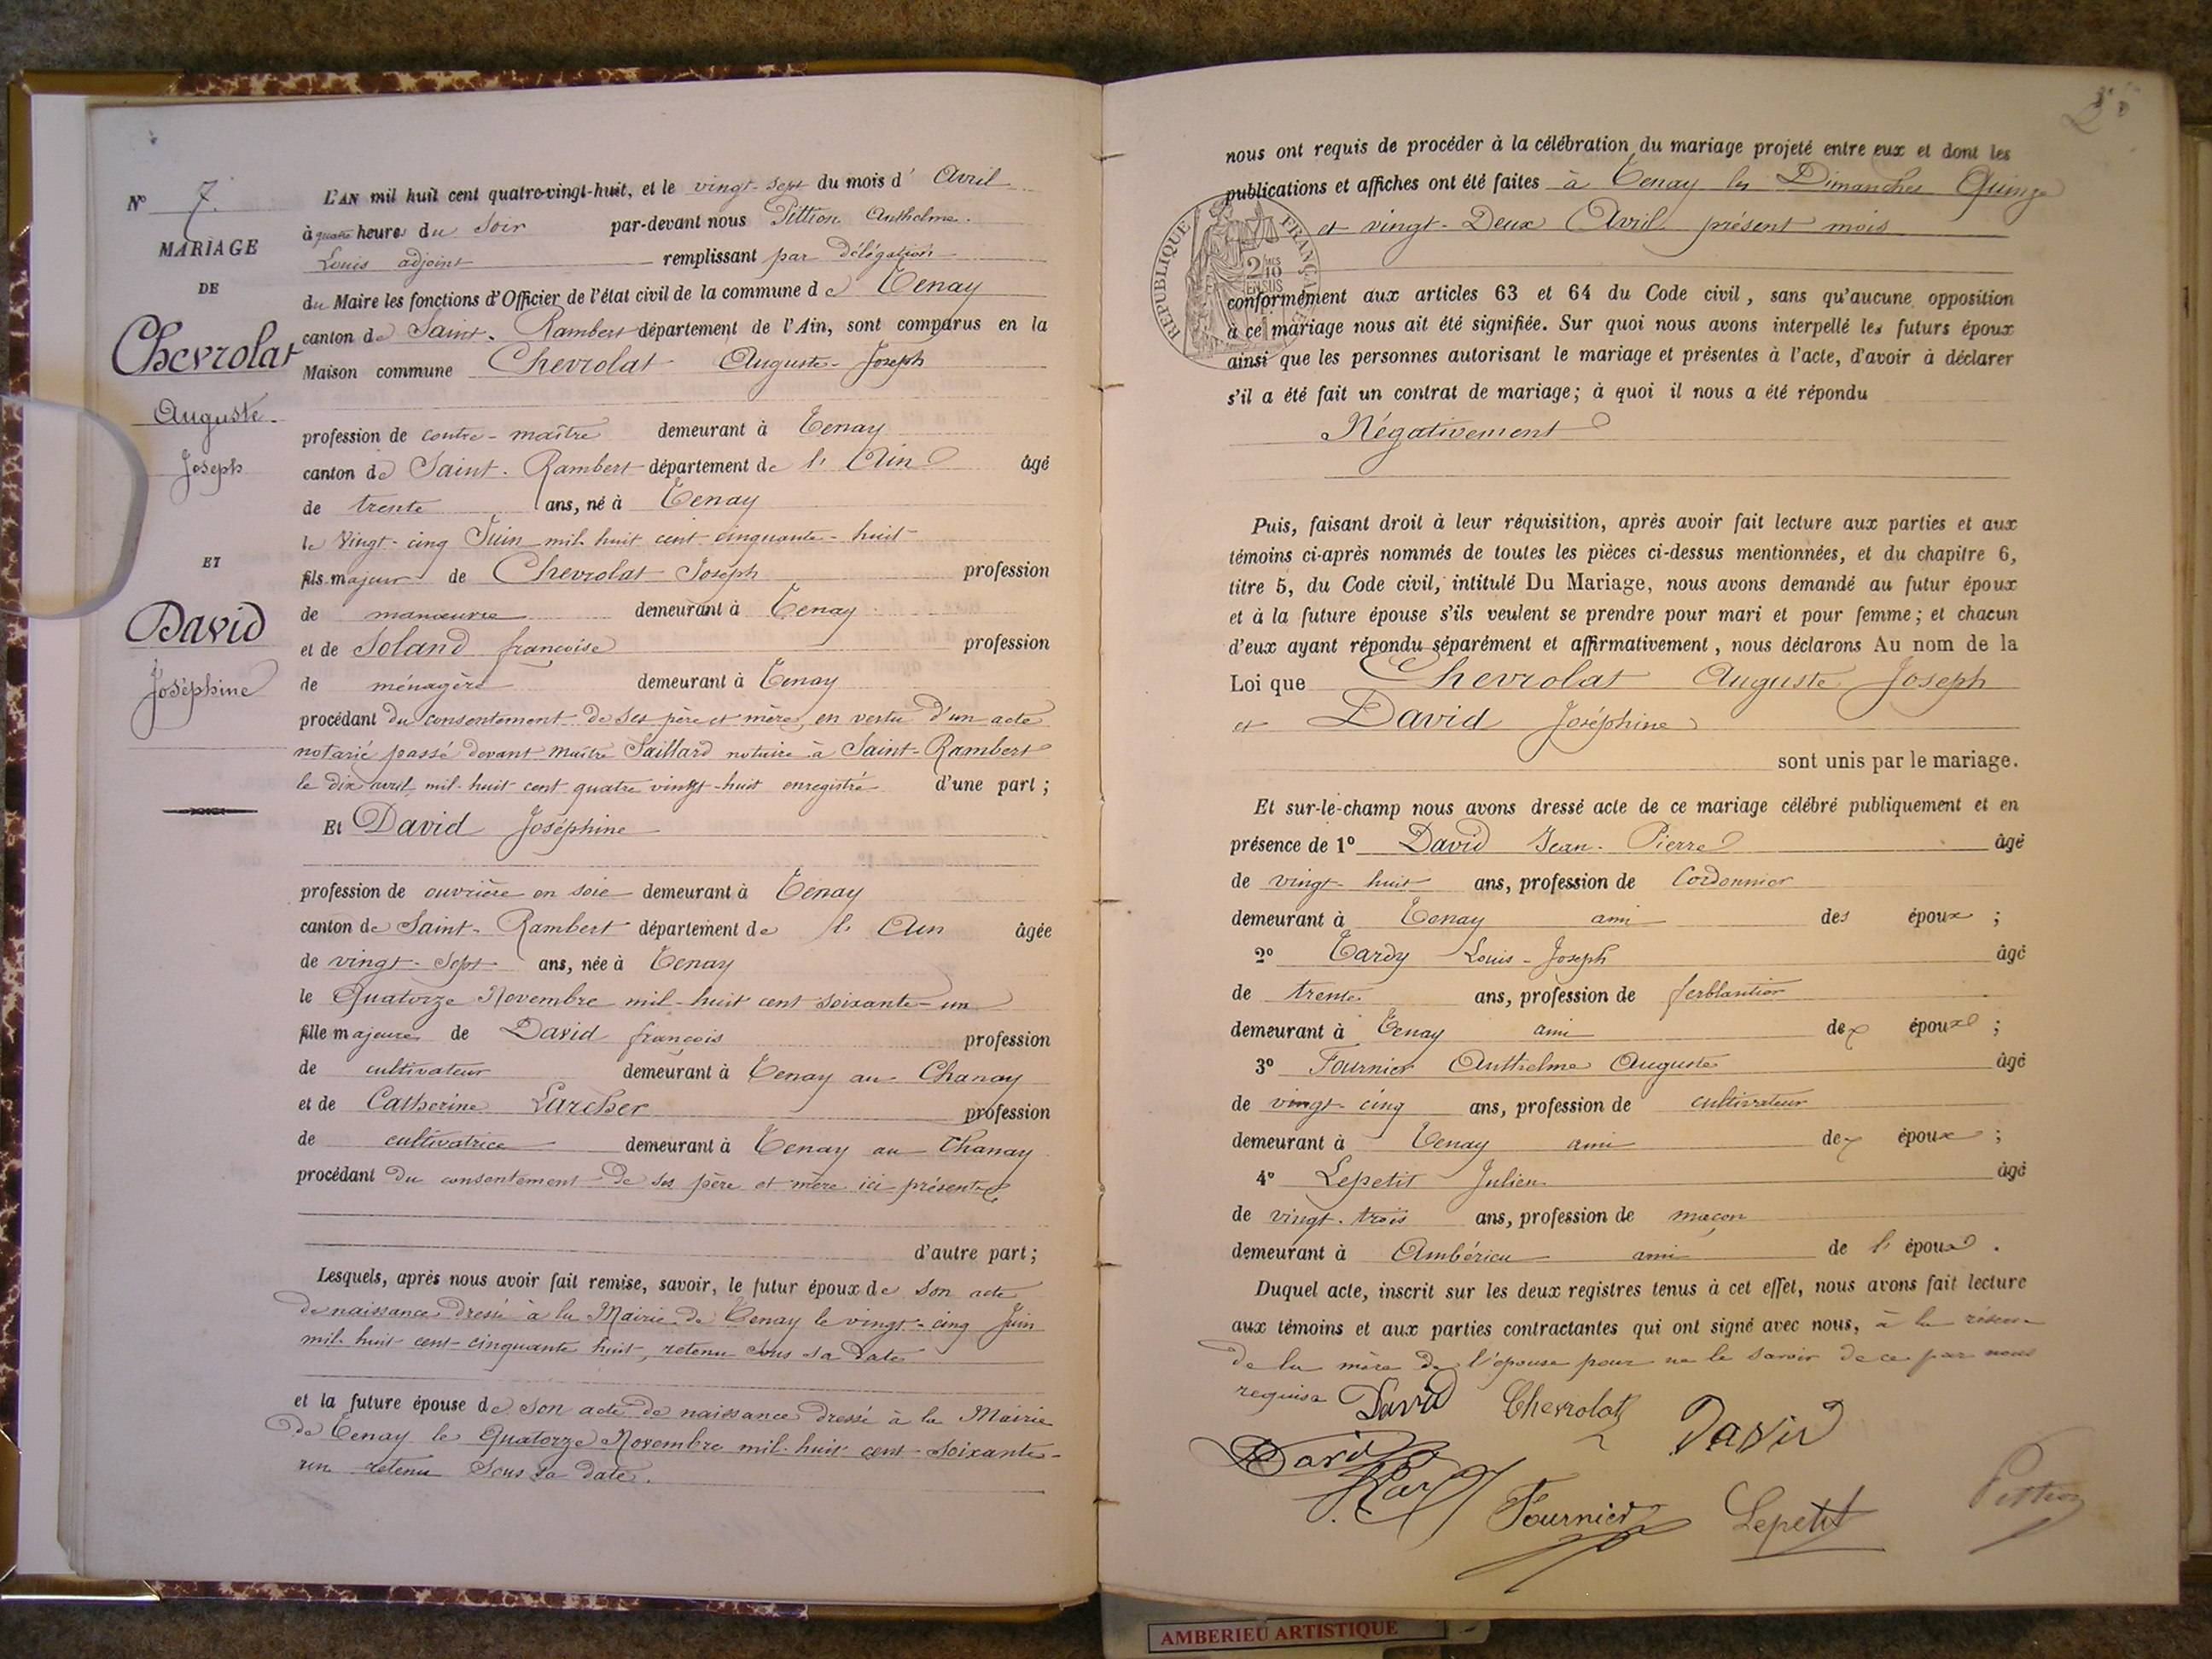 Nº 7.
MARIAGE
DE
Chevrolat
Auguste
Joseph
ET
David
Joséphine
L'AN mil huit cent quatre-vingt-huit, et le vingt-sept du mois d' Avril
à quatre heures du Soir par-devant nous Pittion Anthelme
Louis adjoint remplissant par délégation
du Maire les fonctions d'Officier de l'état civil de la commune de Tenay
canton de Saint-Rambert département de l'Ain, sont comparus en la
Maison commune Chevrolat Auguste-Joseph
profession de contre-maître demeurant à Tenay
canton de Saint-Rambert département de l'Ain âgé
de trente ans, né à Tenay
le Vingt-cinq Juin mil huit cent cinquante-huit
fils majeur de Chevrolat Joseph profession
de manoeuvre demeurant à Tenay
et de Soland françoise profession
de ménagère demeurant à Tenay
procédant du consentement de ses père et mère, en vertu d'un acte
notarié passé devant maître Saillard notaire à Saint-Rambert
le dix avril mil-huit cent quatre vingt-huit enregistré d'une part;
Et David Joséphine
profession de ouvrière en soie demeurant à Tenay
canton de Saint-Rambert département de l'Ain âgée
de vingt-sept ans, née à Tenay
le Quatorze Novembre mil-huit cent soixante-un
fille majeure de David françois profession
de cultivateur demeurant à Tenay au Chanay
et de Catherine Larcher profession
de cultivatrice demeurant à Tenay au Chanay
procédant du consentement de ses père et mère ici présents
d'autre part;
Lesquels, après nous avoir fait remise, savoir, le futur époux de son acte
de naissance dressé à la Mairie de Tenay le vingt-cinq Juin
mil-huit cent-cinquante huit, retenu sous sa date
et la future épouse de son acte de naissance dressé à la Mairie
de Tenay le Quatorze Novembre mil-huit cent-soixante-
un retenu sous sa date.
nous ont requis de procéder à la célébration du mariage projeté entre eux et dont les
publications et affiches ont été faites à Tenay les Dimanches Quinze
et vingt-Deux Avril présent mois
RÉPUBLIQUE FRANÇAISE
2/10 MES EN SUS
conformément aux articles 63 et 64 du Code civil, sans qu'aucune opposition
à ce mariage nous ait été signifiée. Sur quoi nous avons interpellé les futurs époux
ainsi que les personnes autorisant le mariage et présentes à l'acte, d'avoir à déclarer
s'il a été fait un contrat de mariage; à quoi il nous a été répondu
Négativement
Puis, faisant droit à leur réquisition, après avoir fait lecture aux parties et aux
témoins ci-après nommés de toutes les pièces ci-dessus mentionnées, et du chapitre 6,
titre 5, du Code civil, intitulé Du Mariage, nous avons demandé au futur époux
et à la future épouse s'ils veulent se prendre pour mari et pour femme; et chacun
d'eux ayant répondu séparément et affirmativement, nous déclarons Au nom de la
Loi que Chevrolat Auguste Joseph
et David Joséphine
sont unis par le mariage.
Et sur-le-champ nous avons dressé acte de ce mariage célébré publiquement et en
présence de 1º David Jean-Pierre âgé
de vingt-huit ans, profession de Cordonnier
demeurant à Tenay ami des époux ;
2º Tardy Louis-Joseph âgé
de trente ans, profession de ferblantier
demeurant à Tenay ami des époux ;
3º Fournier Anthelme Auguste âgé
de vingt-cinq ans, profession de cultivateur
demeurant à Tenay ami des époux ;
4º Lepetit Julien âgé
de vingt-trois ans, profession de maçon
demeurant à Ambérieu ami de l'époux .
Duquel acte, inscrit sur les deux registres tenus à cet effet, nous avons fait lecture
aux témoins et aux parties contractantes qui ont signé avec nous, à la réserve
de la mère de l'épouse pour ne le savoir de ce par nous
requise David Chevrolat David
David
Fournier Lepetit Pittion
AMBERIEU ARTISTIQUE